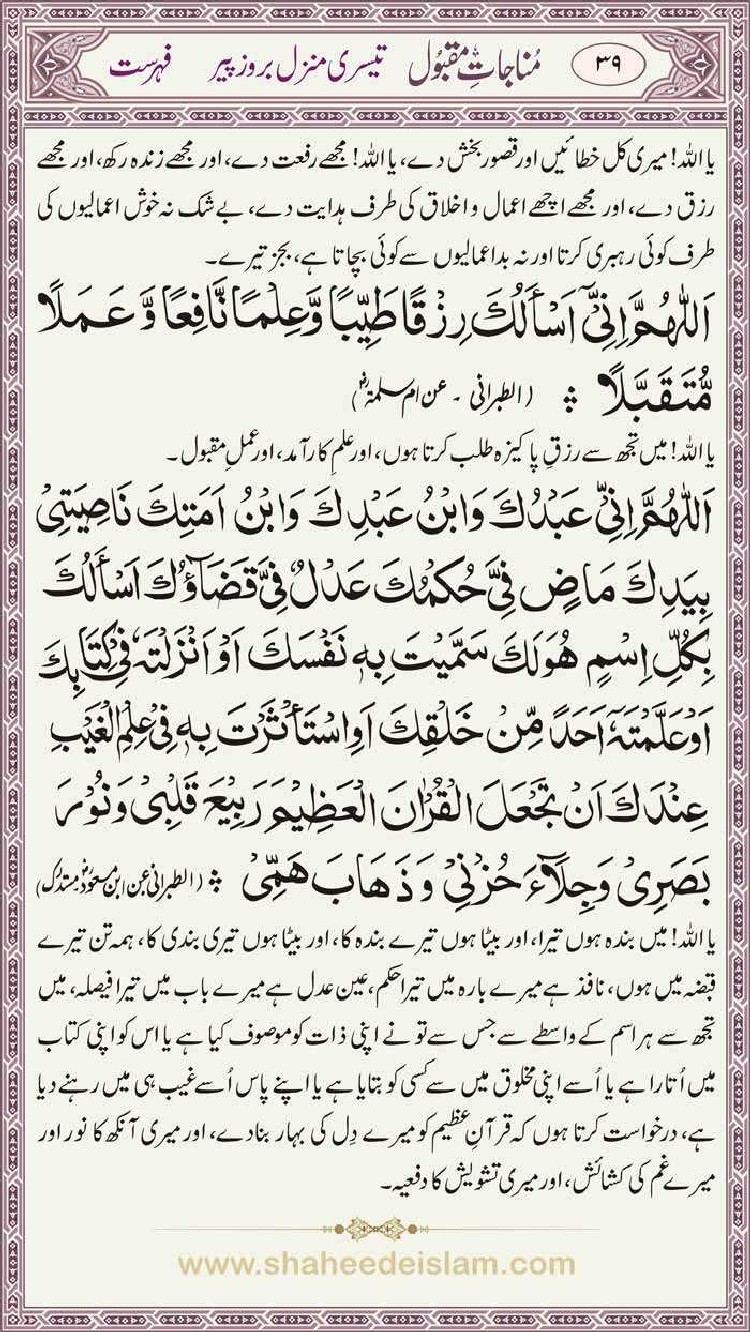 ۳۹ مُناجاتِ مقبُول تیسری منزل بروز پیر فہرست
یا اللہ! میری کل خطائیں اور قصور بخش دے، یا اللہ! مجھے رفعت دے، اور مجھے زندہ رکھ، اور مجھے
رزق دے، اور مجھے اچھے اعمال و اخلاق کی طرف ہدایت دے، بے شک نہ خوش اعمالیوں کی
طرف کوئی رہبری کرتا اور نہ بد اعمالیوں سے کوئی بچاتا ہے، بجز تیرے۔
اَللّٰهُمَّ اِنِّیْٓ اَسْأَلُكَ رِزْقًا طَيِّبًا وَّعِلْمًا نَّافِعًا وَّ عَمَلًا
مُّتَقَبَّلًا ؞ (الطبرانی ۔ عن ام سلمۃؓ)
یا اللہ! میں تجھ سے رزقِ پاکیزہ طلب کرتا ہوں، اور علمِ کارآمد، اور عملِ مقبول۔
اَللّٰهُمَّ اِنِّیْ عَبْدُكَ وَابْنُ عَبْدِكَ وَابْنُ اَمَتِكَ نَاصِيَتِیْ
بِيَدِكَ مَاضٍ فِیَّ حُكْمُكَ عَدْلٌ فِیَّ قَضَآؤُكَ اَسْأَلُكَ
بِكُلِّ اِسْمٍ هُوَ لَكَ سَمَّيْتَ بِهٖ نَفْسَكَ اَوْ اَنْزَلْتَهٗ فِیْ كِتَابِكَ
اَوْ عَلَّمْتَهٗٓ اَحَدًا مِّنْ خَلْقِكَ اَوِ اسْتَأْثَرْتَ بِهٖ فِیْ عِلْمِ الْغَيْبِ
عِنْدَكَ اَنْ تَجْعَلَ الْقُرْاٰنَ الْعَظِيْمَ رَبِيْعَ قَلْبِیْ وَ نُوْرَ
بَصَرِیْ وَجِلَآءَ حُزْنِیْ وَ ذَهَابَ هَمِّیْ ؞ (الطبرانی عن ابن مسعودؓ مستدرک)
یا اللہ! میں بندہ ہوں تیرا، اور بیٹا ہوں تیرے بندہ کا، اور بیٹا ہوں تیری بندی کا، ہمہ تن تیرے
قبضہ میں ہوں، نافذ ہے میرے بارہ میں تیرا حکم، عین عدل ہے میرے باب میں تیرا فیصلہ، میں
تجھ سے ہر اسم کے واسطے سے جس سے تو نے اپنی ذات کو موصوف کیا ہے یا اس کو اپنی کتاب
میں اُتارا ہے یا اُسے اپنی مخلوق میں سے کسی کو بتایا ہے یا اپنے پاس اُسے غیب ہی میں رہنے دیا
ہے، درخواست کرتا ہوں کہ قرآنِ عظیم کو میرے دِل کی بہار بنادے، اور میری آنکھ کا نور اور
میرے غم کی کشائش، اور میری تشویش کا دفعیہ۔
www.shaheedeislam.com